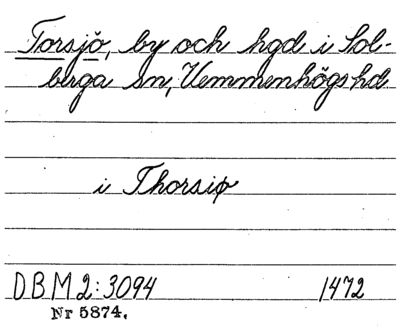 Torsjö, by och hgd i Sol-
berga sn, Vemmenhögs hd.
i Thorsiø
DBM2:3094 1472
Nr 5874.